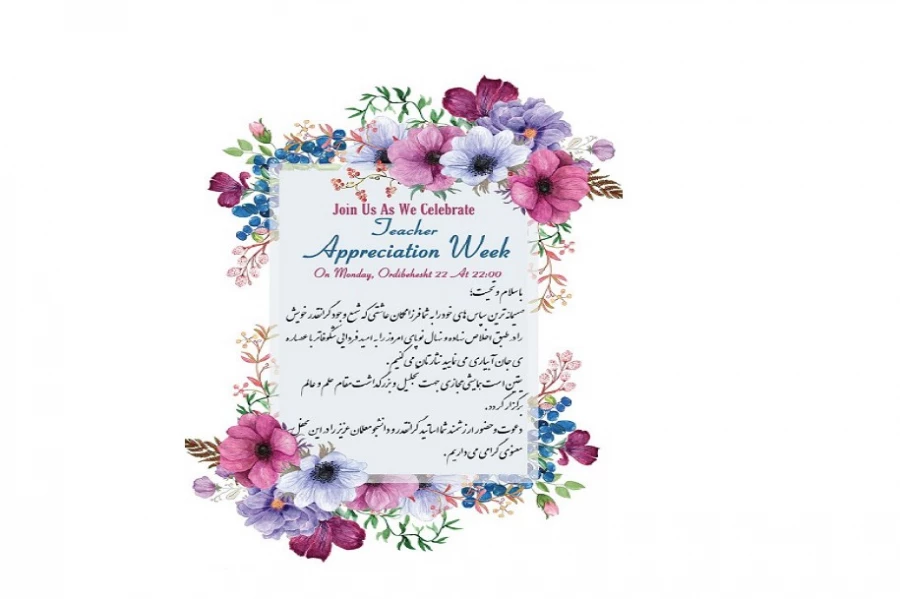 Join Us As We Celebrate
Teacher
Appreciation Week
On Monday, Ordibehesht 22 At 22:00
با سلام و تحیت؛
صمیمانه ترین سپاس های خود را به شما فرزانگان عاشقی که شمع وجود گرانقدر خویش
را در طبق اخلاص نهاده و نهال نوپای امروز را به امید فردایی شکوفاتر با عصاره
ی جان آبیاری می نمایید نثارتان می کنیم.
است همایشی مجازی جهت تجلیل و بزرگداشت مقام علم و عالم
برگزار گردد.
دعوت و حضور ارزشمند شما اساتید گرانقدر و دانشجو معلمان عزیز را در این محفل
معنوی گرامی می داریم.